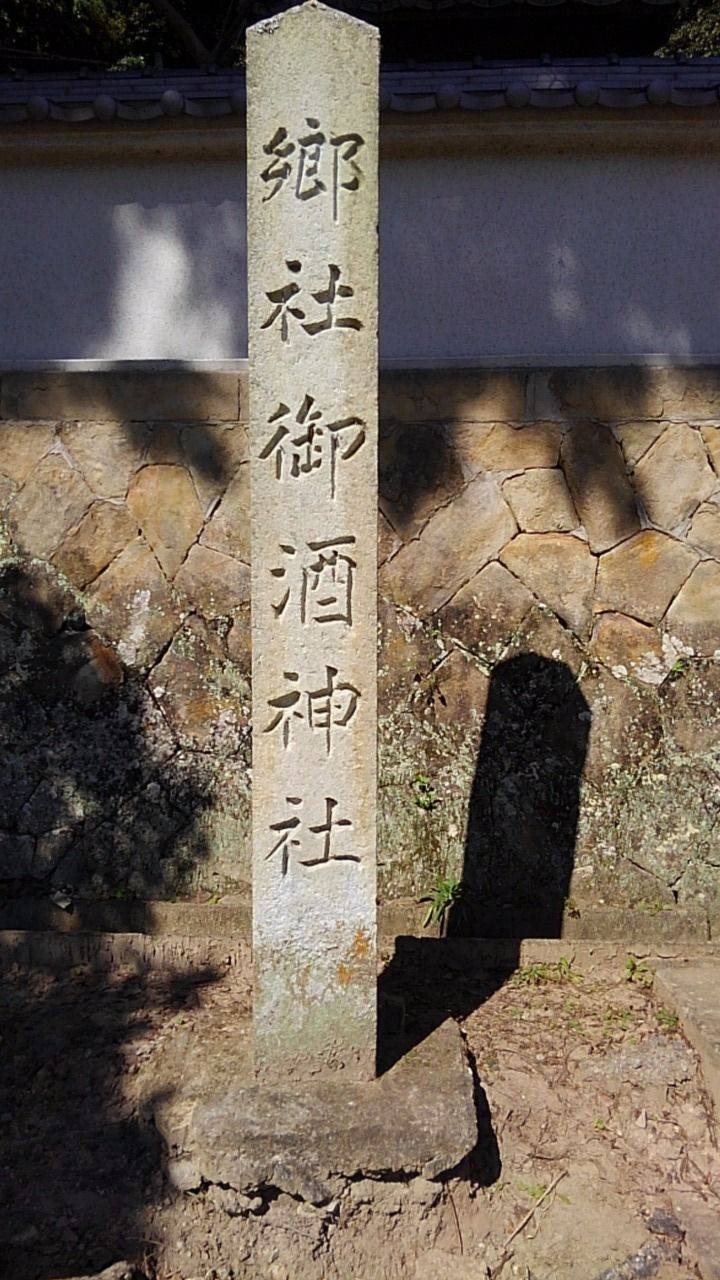 郷社御酒神社